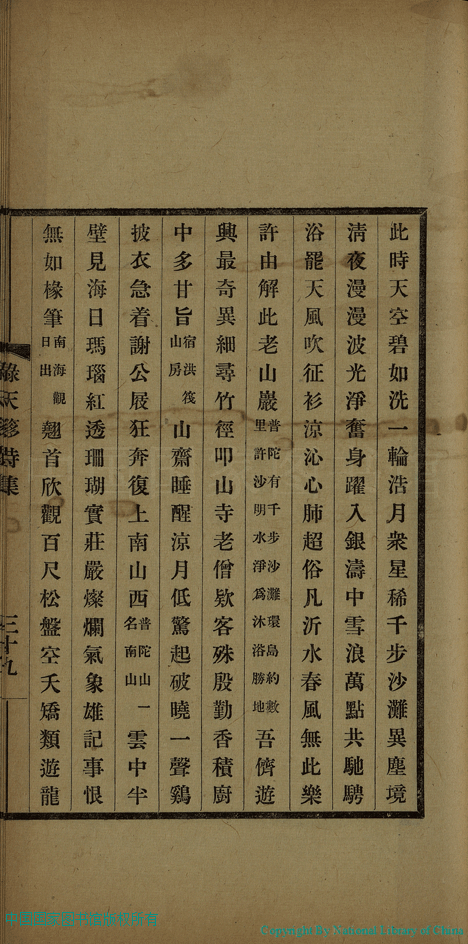 此時天空碧如洗一輪浩月衆星稀千步沙灘異塵境
淸夜漫漫波光淨奮身躍入銀濤中雪浪萬點共馳騁
浴罷天風吹征衫涼沁心肺超俗凡沂水春風無此樂
許由解此老山巖普陀有千步沙灘環島約數里許沙明水淨爲沐浴勝地吾儕遊
興最奇異細尋竹徑叩山寺老僧欵客殊殷勤香積廚
中多甘旨宿洪筏山房山齋睡醒涼月低驚起破曉一聲鷄
披衣急着謝公屐狂奔復上南山西普陀山一名南山雲中半
壁見海日瑪瑙紅透珊瑚實莊嚴燦爛氣象雄記事恨
無如椽筆南海觀日出翹首欣觀百尺松盤空夭矯類遊龍
天 詩集
三十九
Copyright By National Library of China